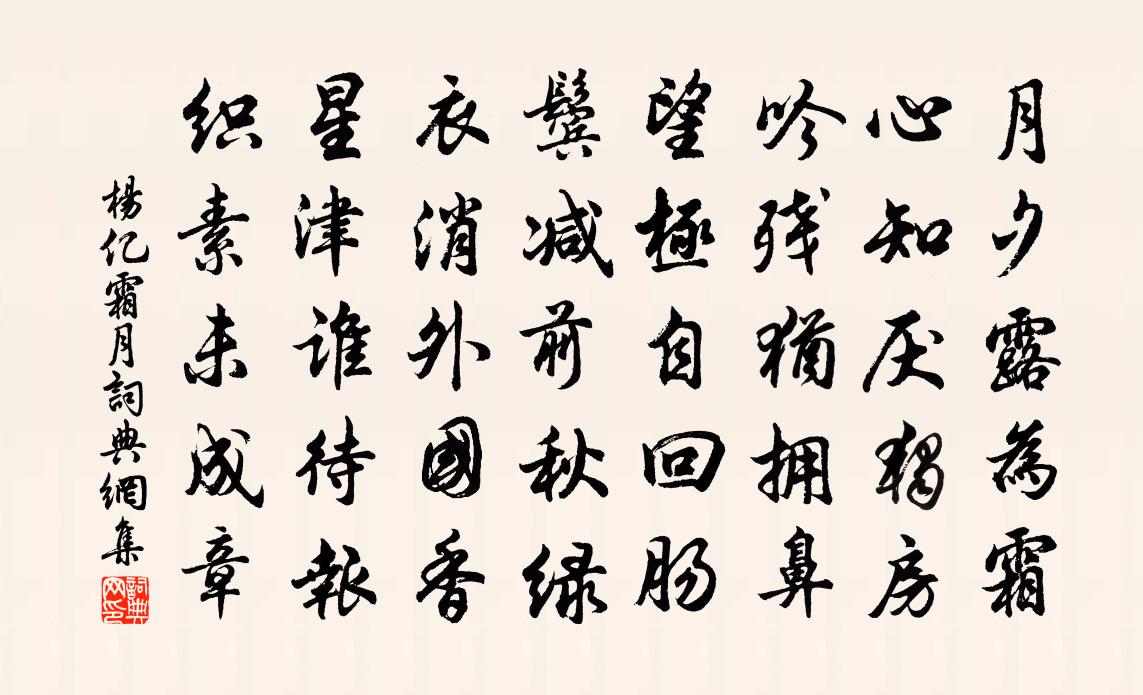 月夕露為霜
心知厌獨房
吟残猶拥鼻
望極自回肠
鬓减前秋绿
衣消外國香
星津谁待報
织素未成章
楊亿霜月詞典網集
詞典网印